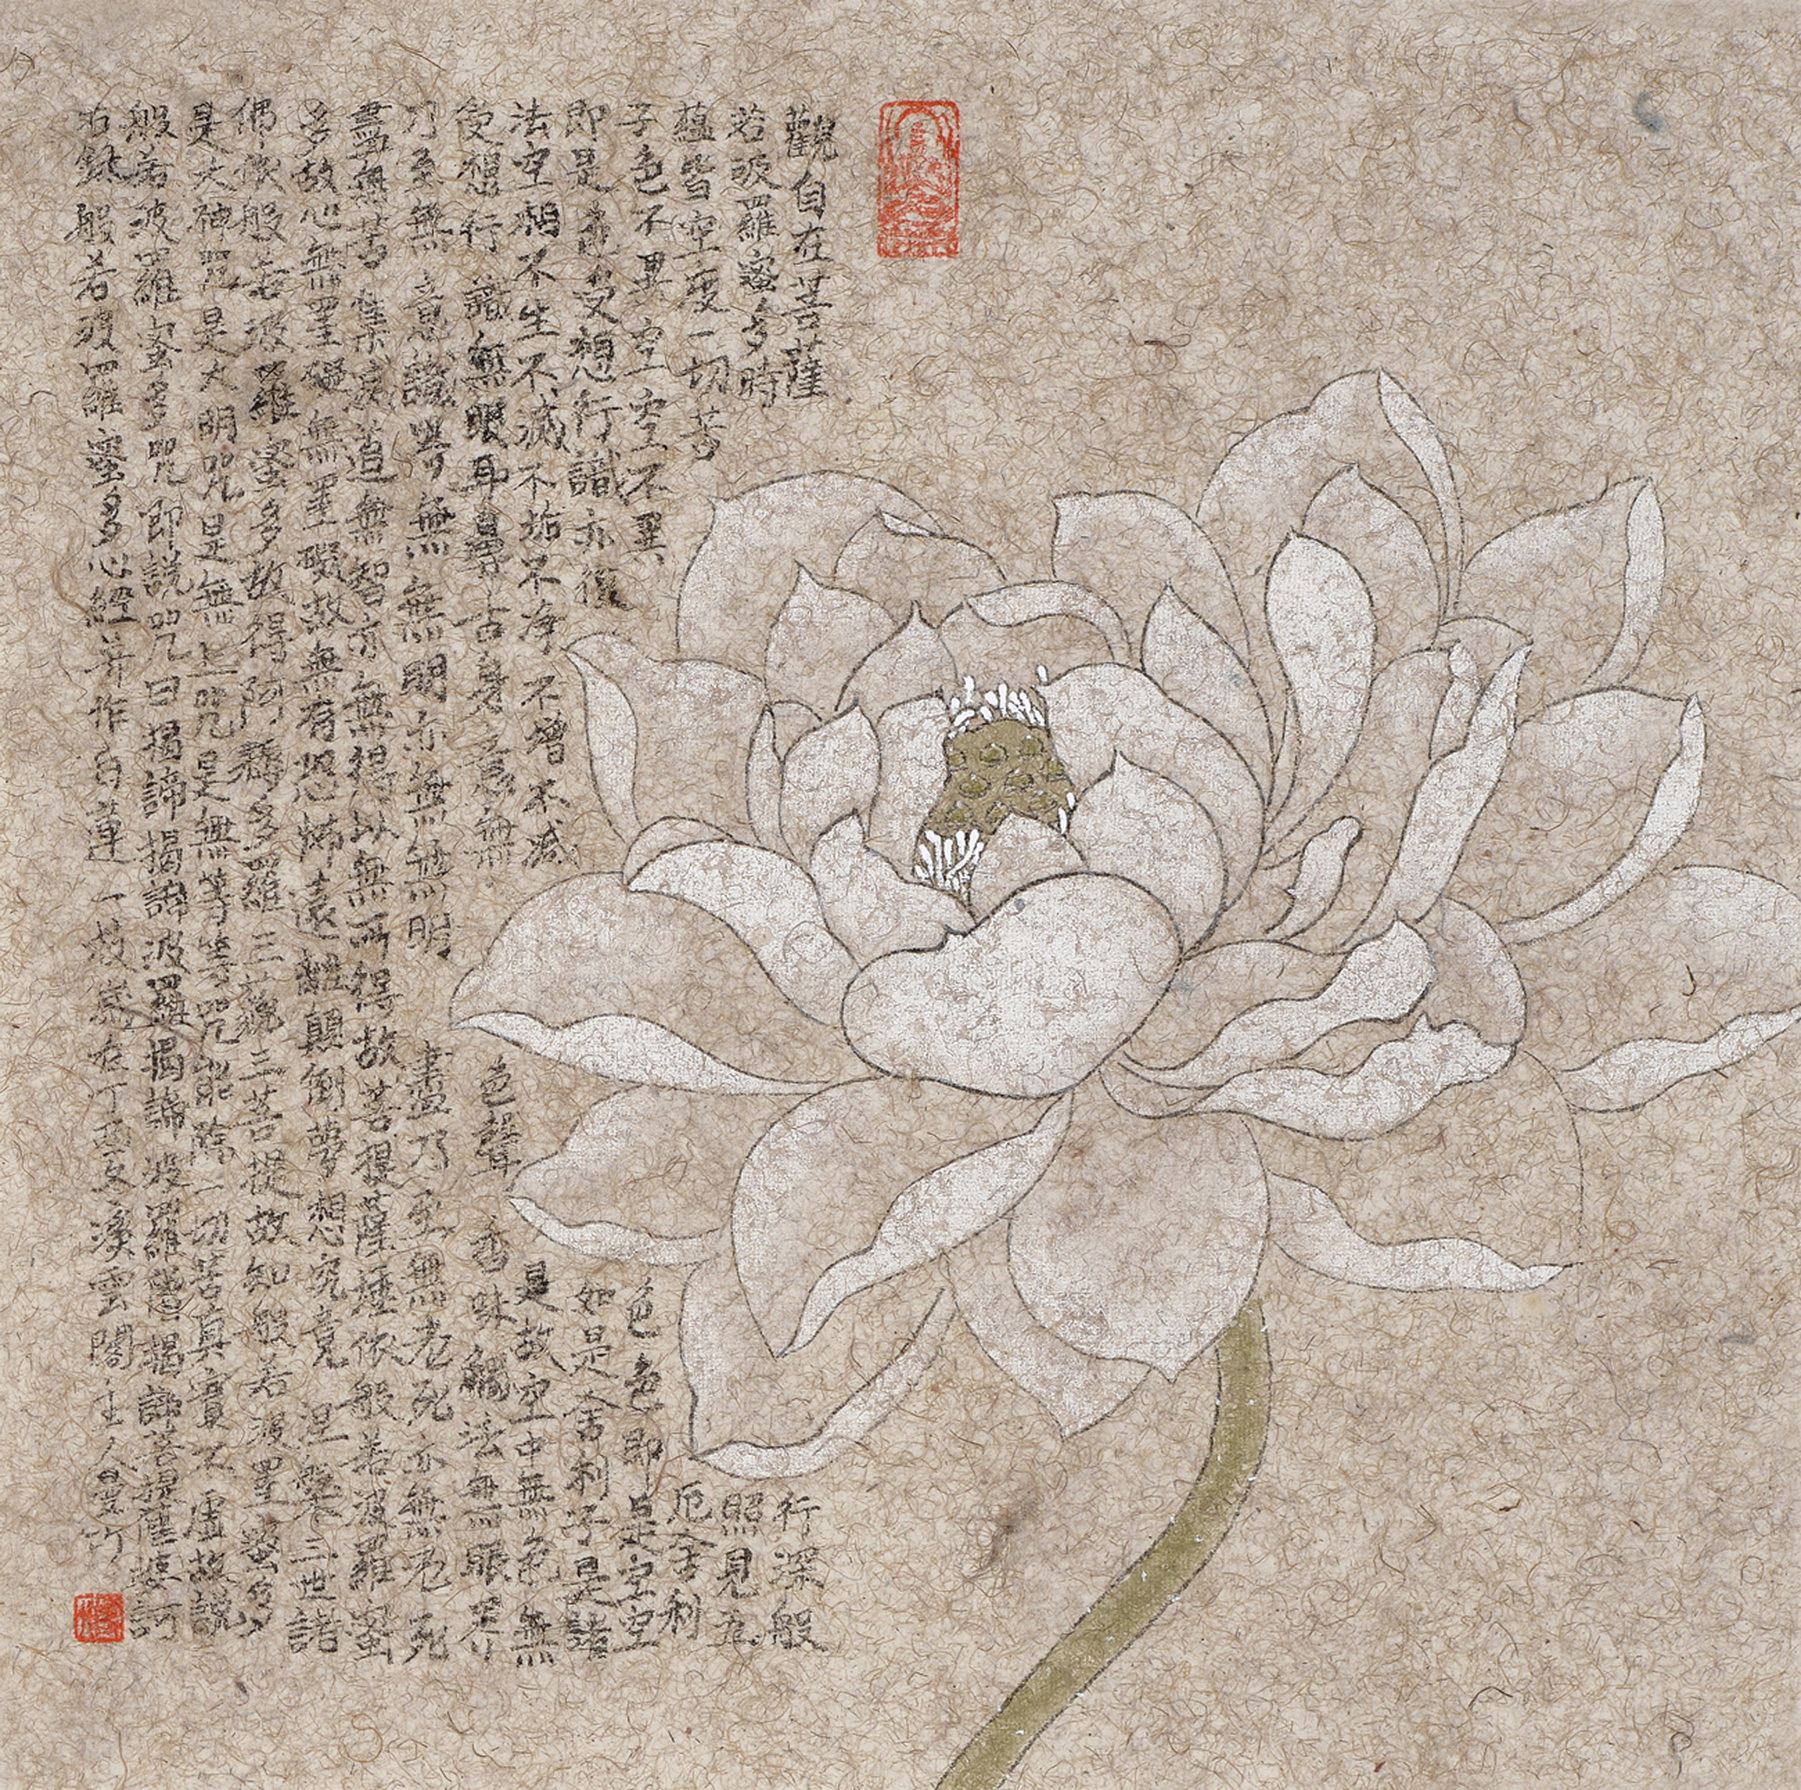 觀自在菩薩行深般
若波羅蜜多時照見五
蘊皆空度一切苦厄舍利
子色不異空空不異色色即是空空
即是色受想行識亦復如是舍利子是諸
法空相不生不滅不垢不净不增不減是故空中無色無
受想行識無眼耳鼻舌身意無色聲香味觸法無眼界
乃至無意識界無無明亦無無明盡乃至無老死亦無老死
盡無苦集滅道無智亦無得以無所得故菩提薩埵依般若波羅蜜
多故心無罣礙無罣礙故無有恐怖遠離顛倒夢想究竟涅槃三世諸
佛依般若波羅蜜多故得阿耨多羅三藐三菩提故知般若波羅蜜多
是大神咒是大明咒是無上咒是無等等咒能除一切苦真實不虛故說
般若波羅蜜多咒即說咒曰揭諦揭諦波羅揭諦波羅僧揭諦菩提薩婆訶
右錄般若波羅蜜多心經并作白蓮一枝歲在丁酉文溪雲閣主人